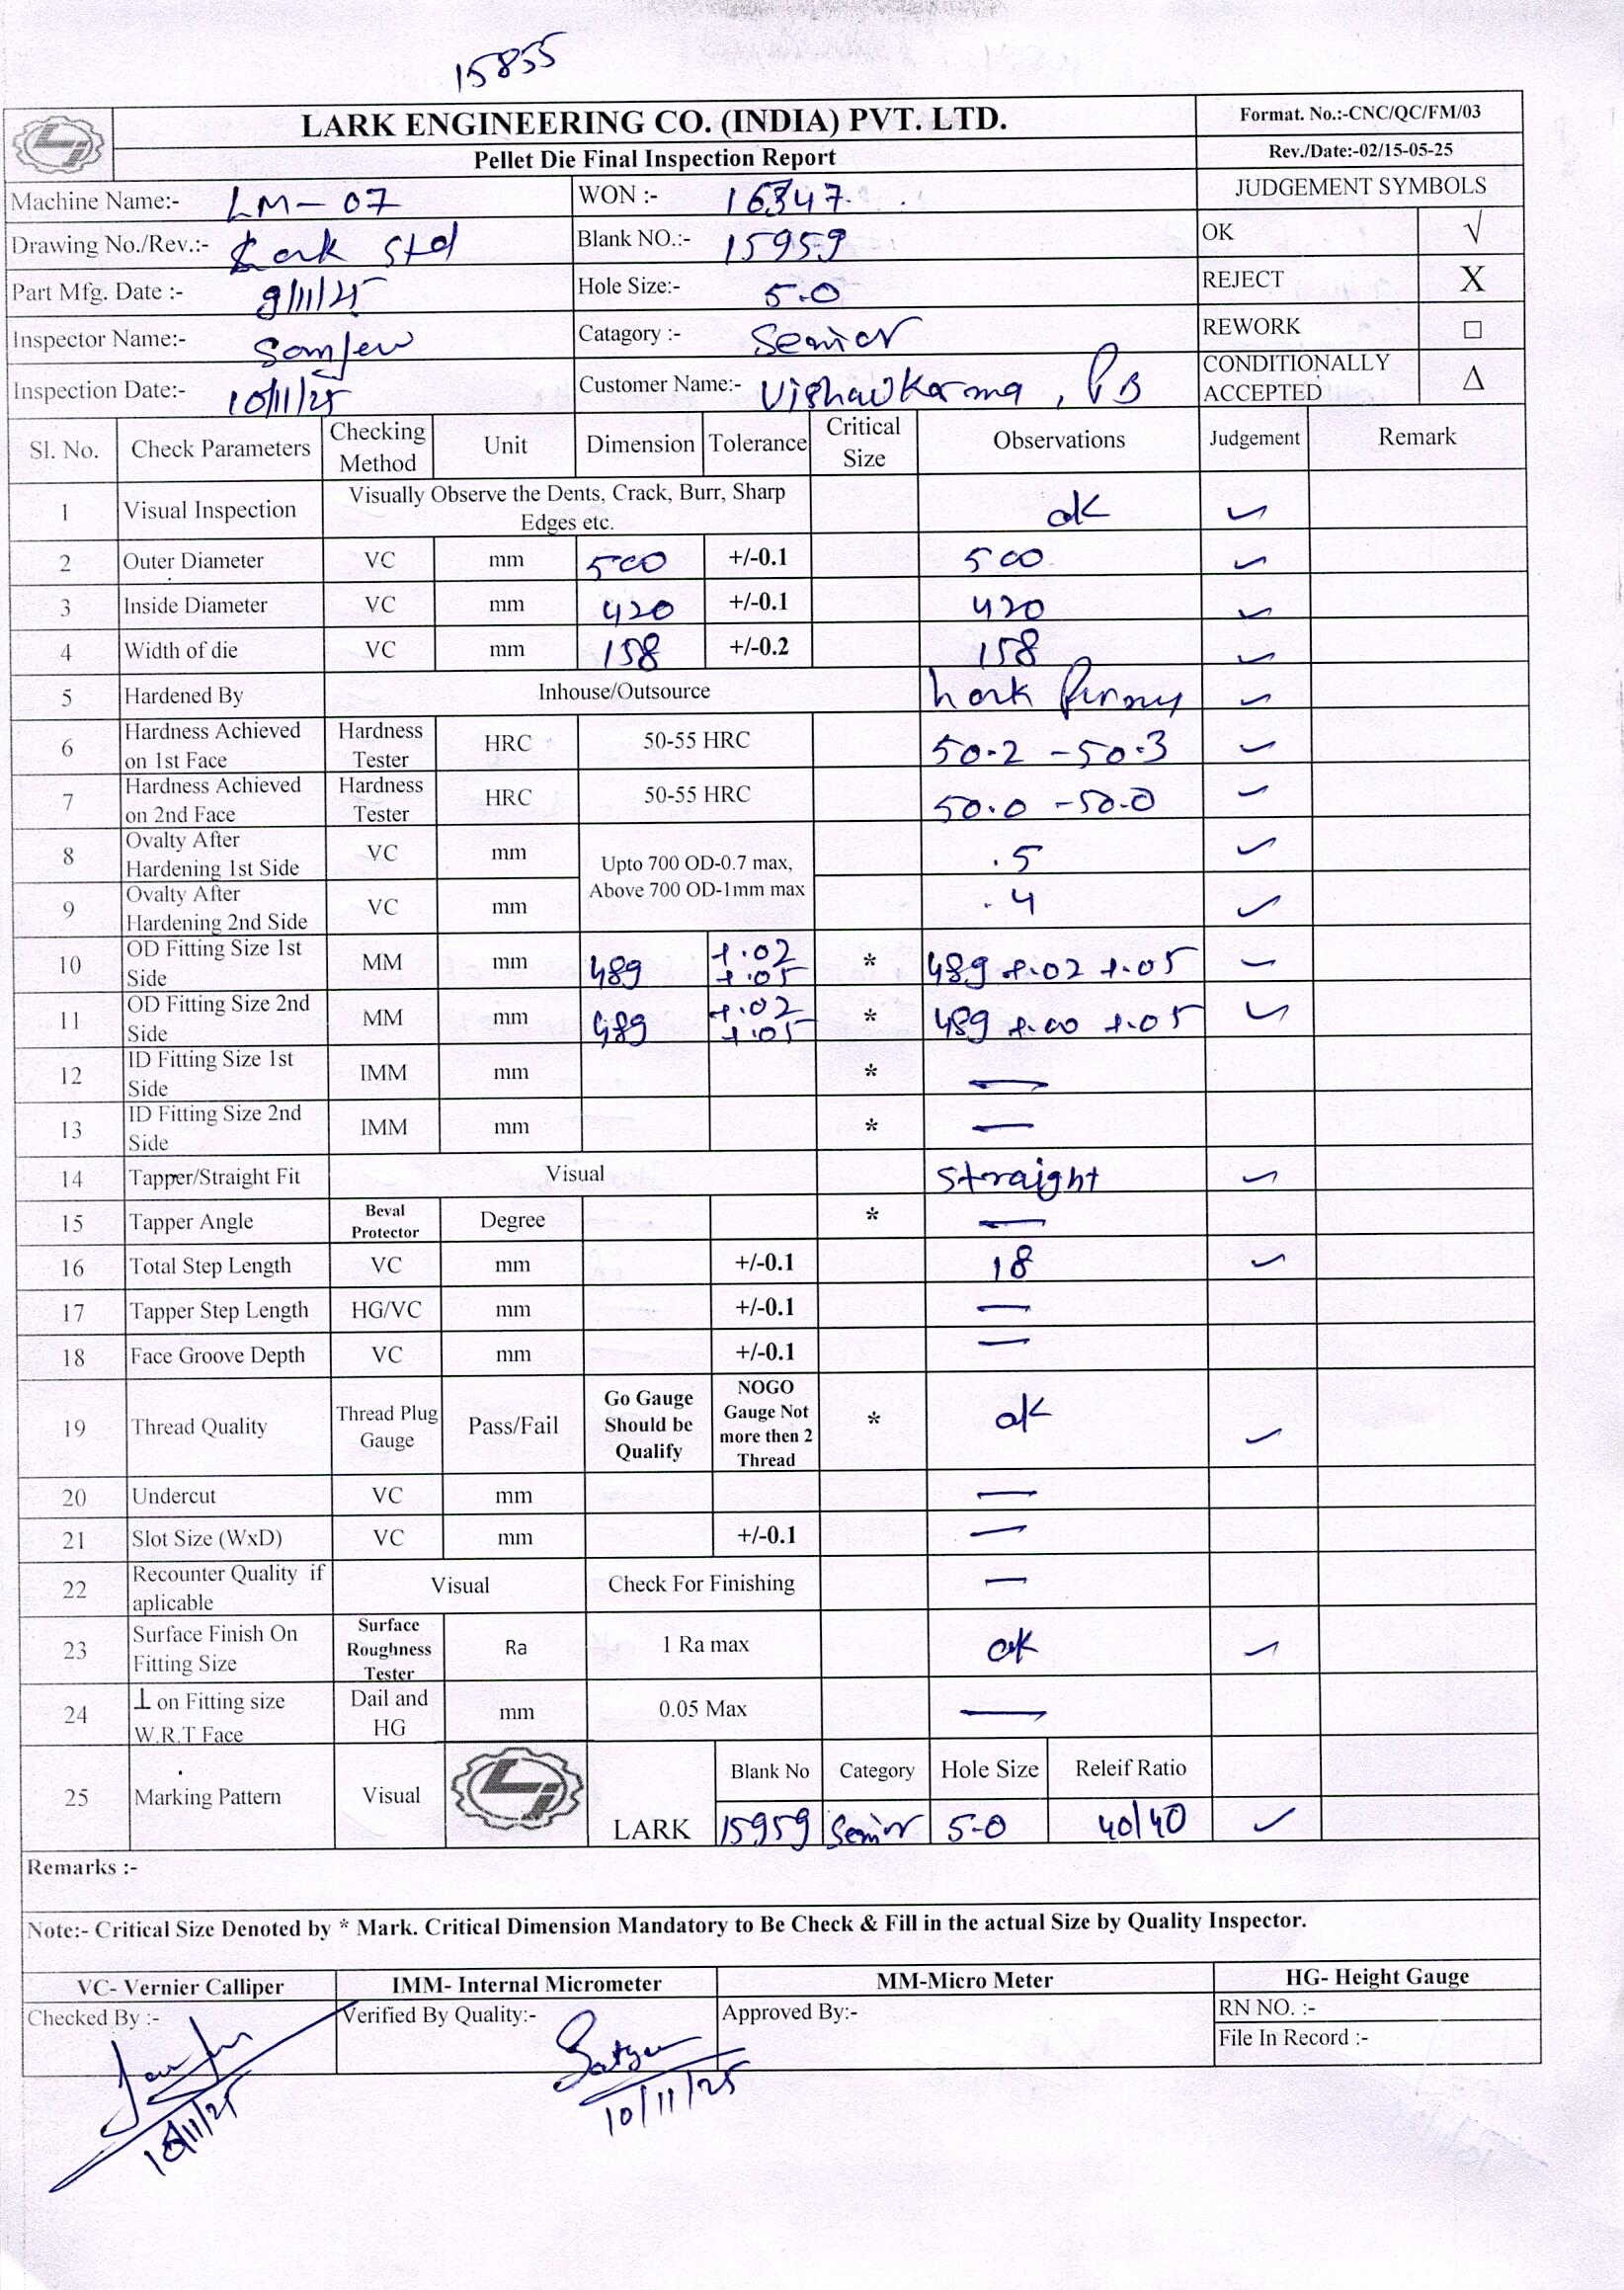 15855
LARK ENGINEERING CO. (INDIA) PVT. LTD.
Format. No.:-CNC/QC/FM/03
Pellet Die Final Inspection Report
Rev./Date:-02/15-05-25
Machine Name:- LM-07 WON :- 16347 JUDGEMENT SYMBOLS
Drawing No./Rev.:- Lark Std Blank NO.:- 15959 OK √
Part Mfg. Date :- 9/11/25 Hole Size:- 5.0 REJECT X
Inspector Name:- Sanjeev Catagory :- Senior REWORK □
Inspection Date:- 10/11/25 Customer Name:- Vishawkarma , PB CONDITIONALLY ACCEPTED Δ
Sl. No. Check Parameters Checking Method Unit Dimension Tolerance Critical Size Observations Judgement Remark
1 Visual Inspection Visually Observe the Dents, Crack, Burr, Sharp Edges etc. ok ✓
2 Outer Diameter VC mm 500 +/-0.1 500 ✓
3 Inside Diameter VC mm 420 +/-0.1 420 ✓
4 Width of die VC mm 158 +/-0.2 158 ✓
5 Hardened By Inhouse/Outsource Lark ✓
6 Hardness Achieved on 1st Face Hardness Tester HRC 50-55 HRC 50.2 - 50.3 ✓
7 Hardness Achieved on 2nd Face Hardness Tester HRC 50-55 HRC 50.0 - 50.0 ✓
8 Ovalty After Hardening 1st Side VC mm Upto 700 OD-0.7 max, Above 700 OD-1mm max .5 ✓
9 Ovalty After Hardening 2nd Side VC mm .4 ✓
10 OD Fitting Size 1st Side MM mm 489 +.02 +.05 * 489 +.02 +.05 ✓
11 OD Fitting Size 2nd Side MM mm 489 +.02 +.05 * 489 +.00 +.05 ✓
12 ID Fitting Size 1st Side IMM mm * —
13 ID Fitting Size 2nd Side IMM mm * —
14 Tapper/Straight Fit Visual Straight ✓
15 Tapper Angle Beval Protector Degree * —
16 Total Step Length VC mm +/-0.1 18 ✓
17 Tapper Step Length HG/VC mm +/-0.1 —
18 Face Groove Depth VC mm +/-0.1 —
19 Thread Quality Thread Plug Gauge Pass/Fail Go Gauge Should be Qualify NOGO Gauge Not more then 2 Thread * ok ✓
20 Undercut VC mm —
21 Slot Size (WxD) VC mm +/-0.1 —
22 Recounter Quality if aplicable Visual Check For Finishing —
23 Surface Finish On Fitting Size Surface Roughness Tester Ra 1 Ra max ok ✓
24 ⊥ on Fitting size W.R.T Face Dail and HG mm 0.05 Max —
25 Marking Pattern Visual LARK Blank No Category Hole Size Releif Ratio
15959 Senior 5.0 40/40 ✓
Remarks :-
Note:- Critical Size Denoted by * Mark. Critical Dimension Mandatory to Be Check & Fill in the actual Size by Quality Inspector.
VC- Vernier Calliper IMM- Internal Micrometer MM-Micro Meter HG- Height Gauge
Checked By :- Verified By Quality:- Approved By:- RN NO. :-
File In Record :-
10/11/25 10/11/25